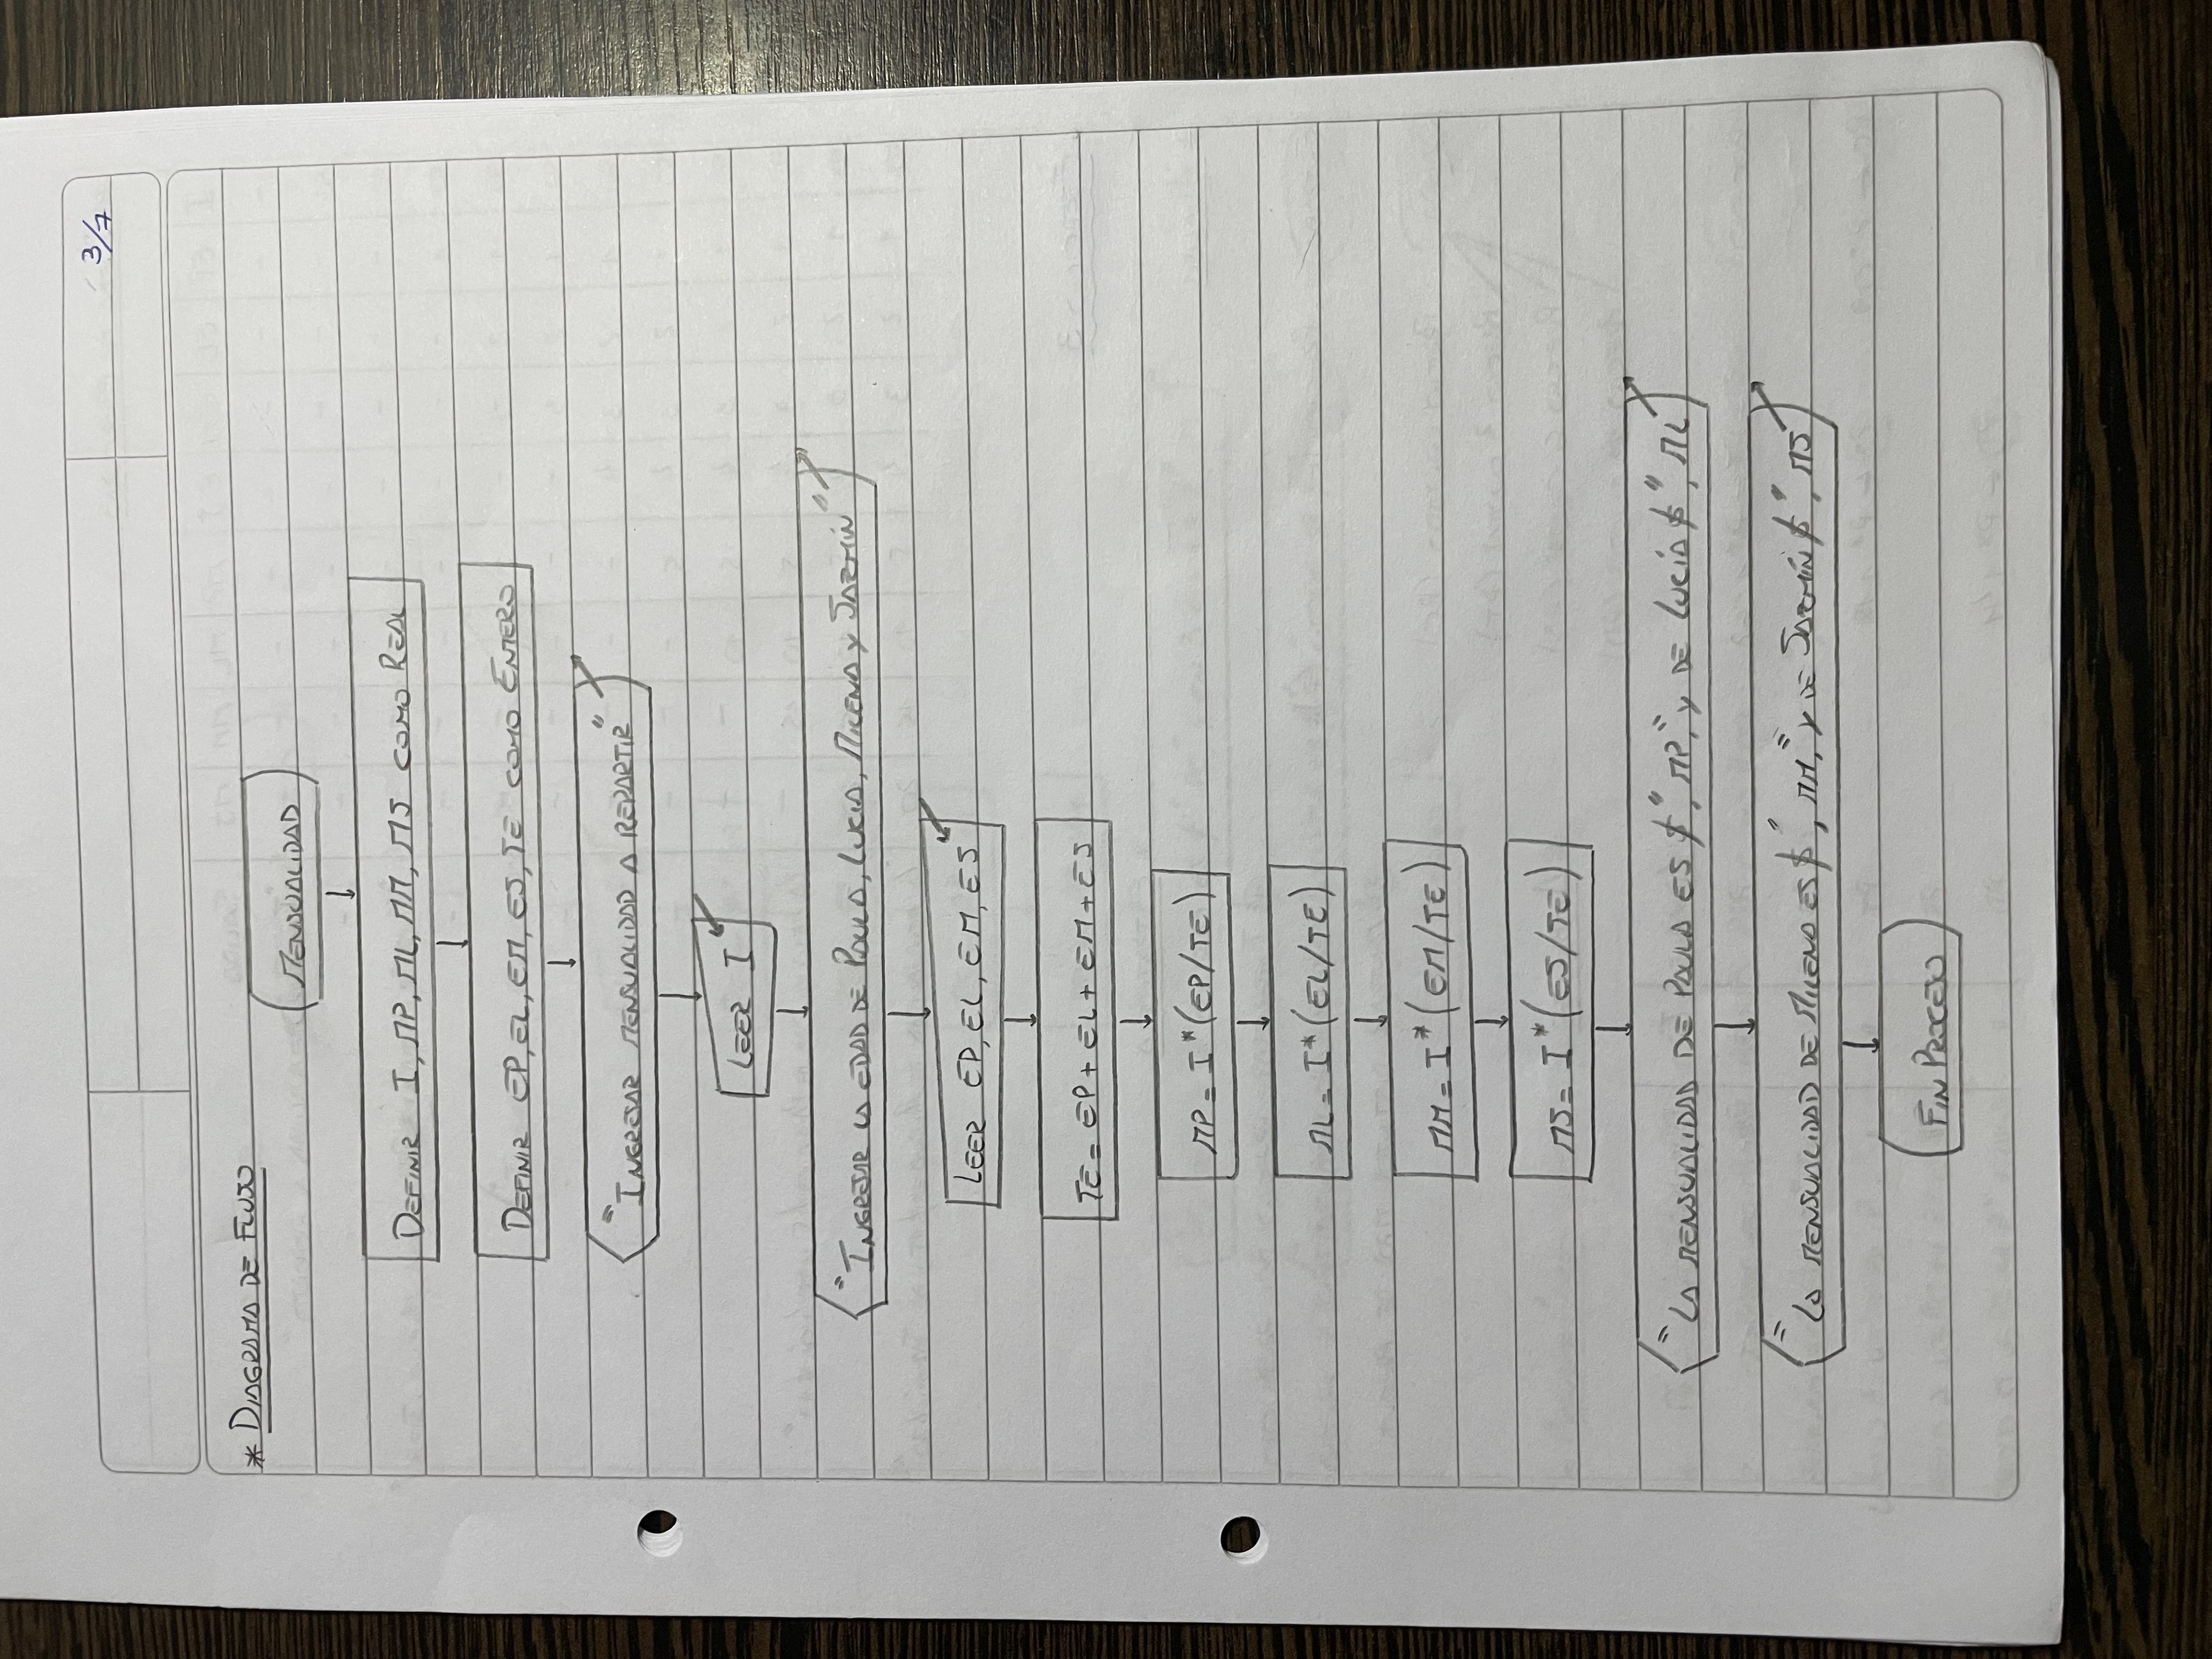 3/7
* DIAGRAMA DE FLUJO
MENSUALIDAD
DEFINIR I, MP, ML, MM, MJ COMO REAL
DEFINIR EP, EL, EM, EJ, TE COMO ENTERO
"INGRESAR MENSUALIDAD A REPARTIR"
LEER I
"INGRESAR LA EDAD DE PAULA, LUCIA, MILENA Y JAZMÍN"
LEER EP, EL, EM, EJ
TE = EP + EL + EM + EJ
MP = I * (EP/TE)
ML = I * (EL/TE)
MM = I * (EM/TE)
MJ = I * (EJ/TE)
"LA MENSUALIDAD DE PAULA ES $", MP, "Y DE LUCÍA $", ML
"LA MENSUALIDAD DE MILENA ES $", MM, "Y DE JAZMÍN $", MJ
FIN PROCESO